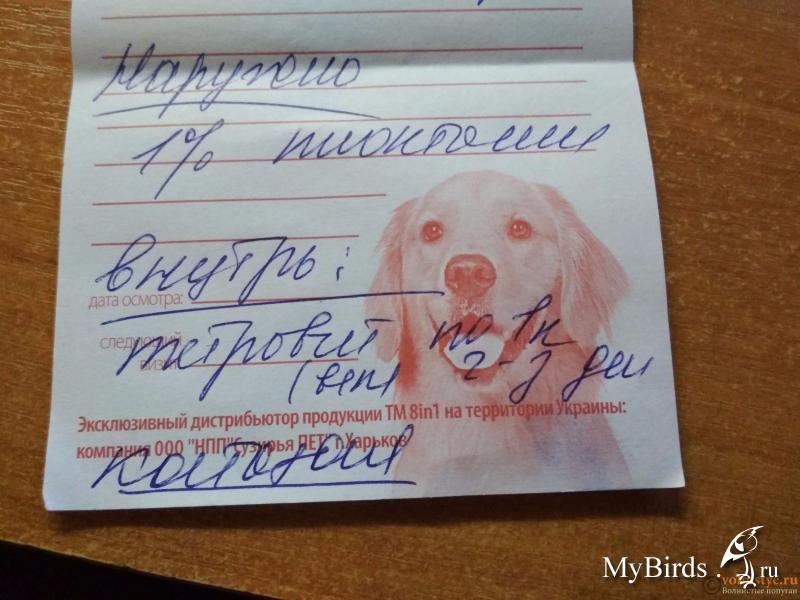 Наружно
1%
внутрь:
дата осмотра:
следующий
тетровит по 1к
визит: (вет) 2-3 дня
Эксклюзивный дистрибьютор продукции ТМ 8in1 на территории Украины:
компания ООО "НПП"Сузирья ПЕТ" г.Харьков
MyBirds.ru
Волнистые попугаи